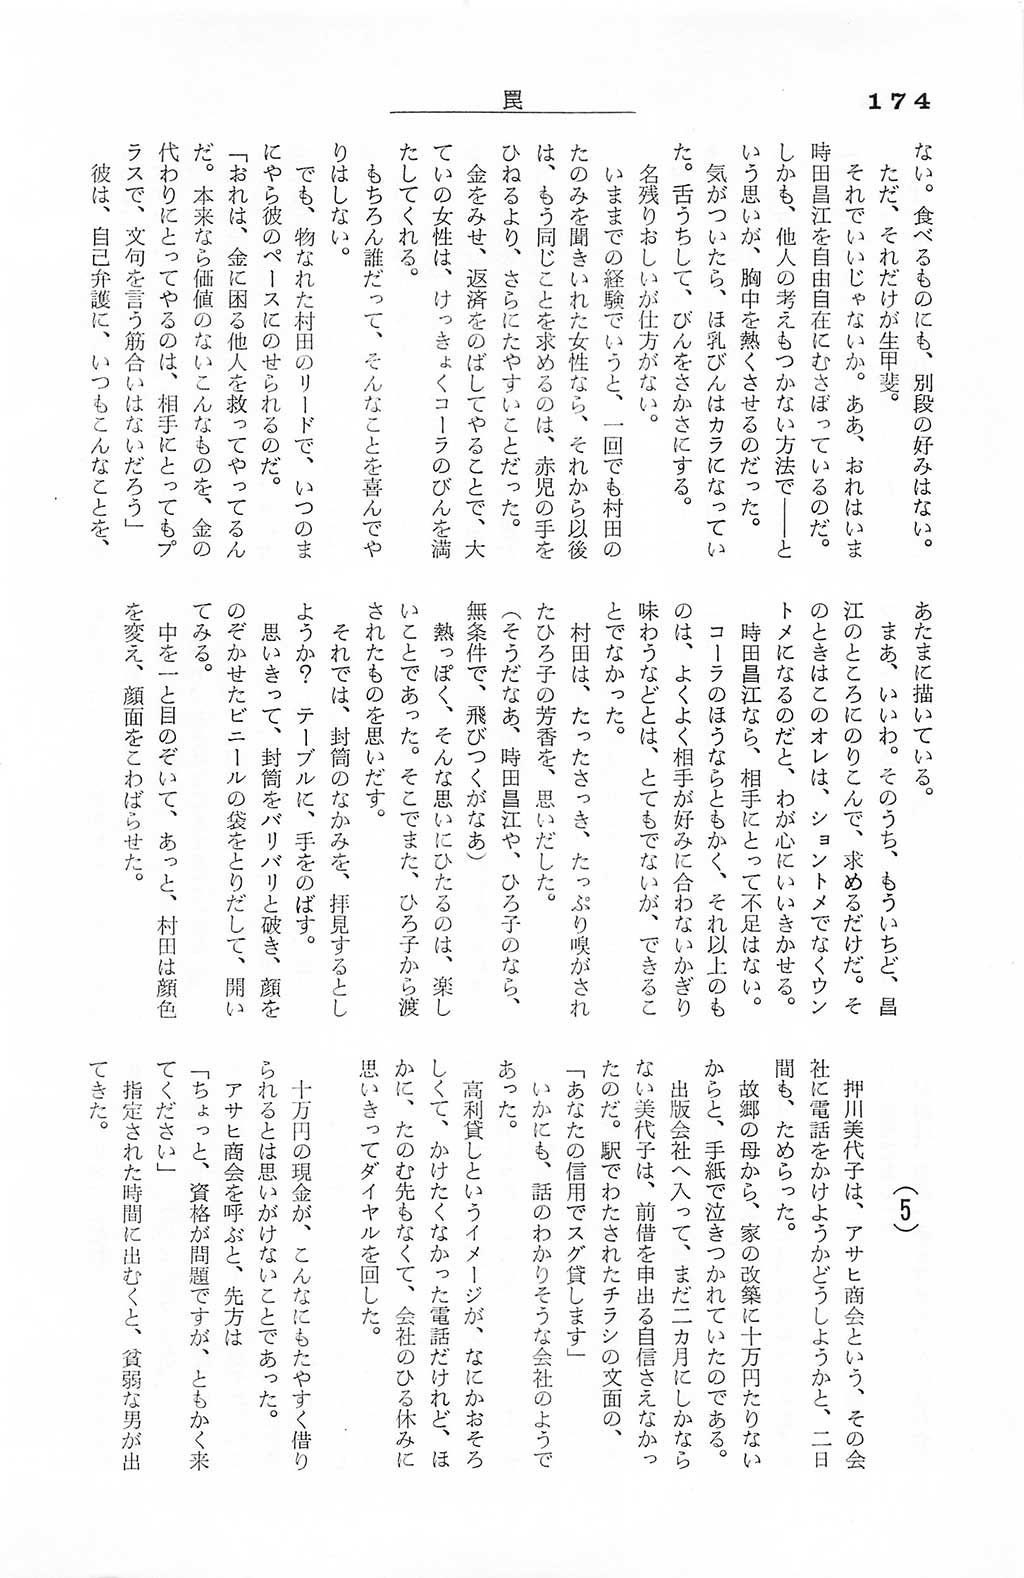 174
罠
ない。食べるものにも、別段の好みはない。
ただ、それだけが生甲斐。
それでいいじゃないか。ああ、おれはいま
時田昌江を自由自在にむさぼっているのだ。
しかも、他人の考えもつかない方法で――と
いう思いが、胸中を熱くさせるのだった。
気がついたら、ほ乳びんはカラになってい
た。舌うちして、びんをさかさにする。
名残りおしいが仕方がない。
いままでの経験でいうと、一回でも村田の
たのみを聞きいれた女性なら、それから以後
は、もう同じことを求めるのは、赤児の手を
ひねるより、さらにたやすいことだった。
金をみせ、返済をのばしてやることで、大
ていの女性は、けっきょくコーラのびんを満
たしてくれる。
もちろん誰だって、そんなことを喜んでや
りはしない。
でも、物なれた村田のリードで、いつのま
にやら彼のペースにのせられるのだ。
「おれは、金に困る他人を救ってやってるん
だ。本来なら価値のないこんなものを、金の
代わりにとってやるのは、相手にとってもプ
ラスで、文句を言う筋合いはないだろう」
彼は、自己弁護に、いつもこんなことを、
あたまに描いている。
まあ、いいわ。そのうち、もういちど、昌
江のところにのりこんで、求めるだけだ。そ
のときはこのオレは、ショントメでなくウン
トメになるのだと、わが心にいいきかせる。
時田昌江なら、相手にとって不足はない。
コーラのほうならともかく、それ以上のも
のは、よくよく相手が好みに合わないかぎり
味わうなどとは、とてもでないが、できるこ
とでなかった。
村田は、たったさっき、たっぷり嗅がされ
たひろ子の芳香を、思いだした。
（そうだなあ、時田昌江や、ひろ子のなら、
無条件で、飛びつくがなあ）
熱っぽく、そんな思いにひたるのは、楽し
いことであった。そこでまた、ひろ子から渡
されたものを思いだす。
それでは、封筒のなかみを、拝見するとし
ようか？　テーブルに、手をのばす。
思いきって、封筒をバリバリと破き、顔を
のぞかせたビニールの袋をとりだして、開い
てみる。
中を一と目のぞいて、あっと、村田は顔色
を変え、顔面をこわばらせた。
（5）
押川美代子は、アサヒ商会という、その会
社に電話をかけようかどうしようかと、二日
間も、ためらった。
故郷の母から、家の改築に十万円たりない
からと、手紙で泣きつかれていたのである。
出版会社へ入って、まだ二カ月にしかなら
ない美代子は、前借を申出る自信さえなかっ
たのだ。駅でわたされたチラシの文面の、
「あなたの信用でスグ貸します」
いかにも、話のわかりそうな会社のようで
あった。
高利貸しというイメージが、なにかおそろ
しくて、かけたくなかった電話だけれど、ほ
かに、たのむ先もなくて、会社のひる休みに
思いきってダイヤルを回した。
十万円の現金が、こんなにもたやすく借り
られるとは思いがけないことであった。
アサヒ商会を呼ぶと、先方は
「ちょっと、資格が問題ですが、ともかく来
てください」
指定された時間に出むくと、貧弱な男が出
てきた。